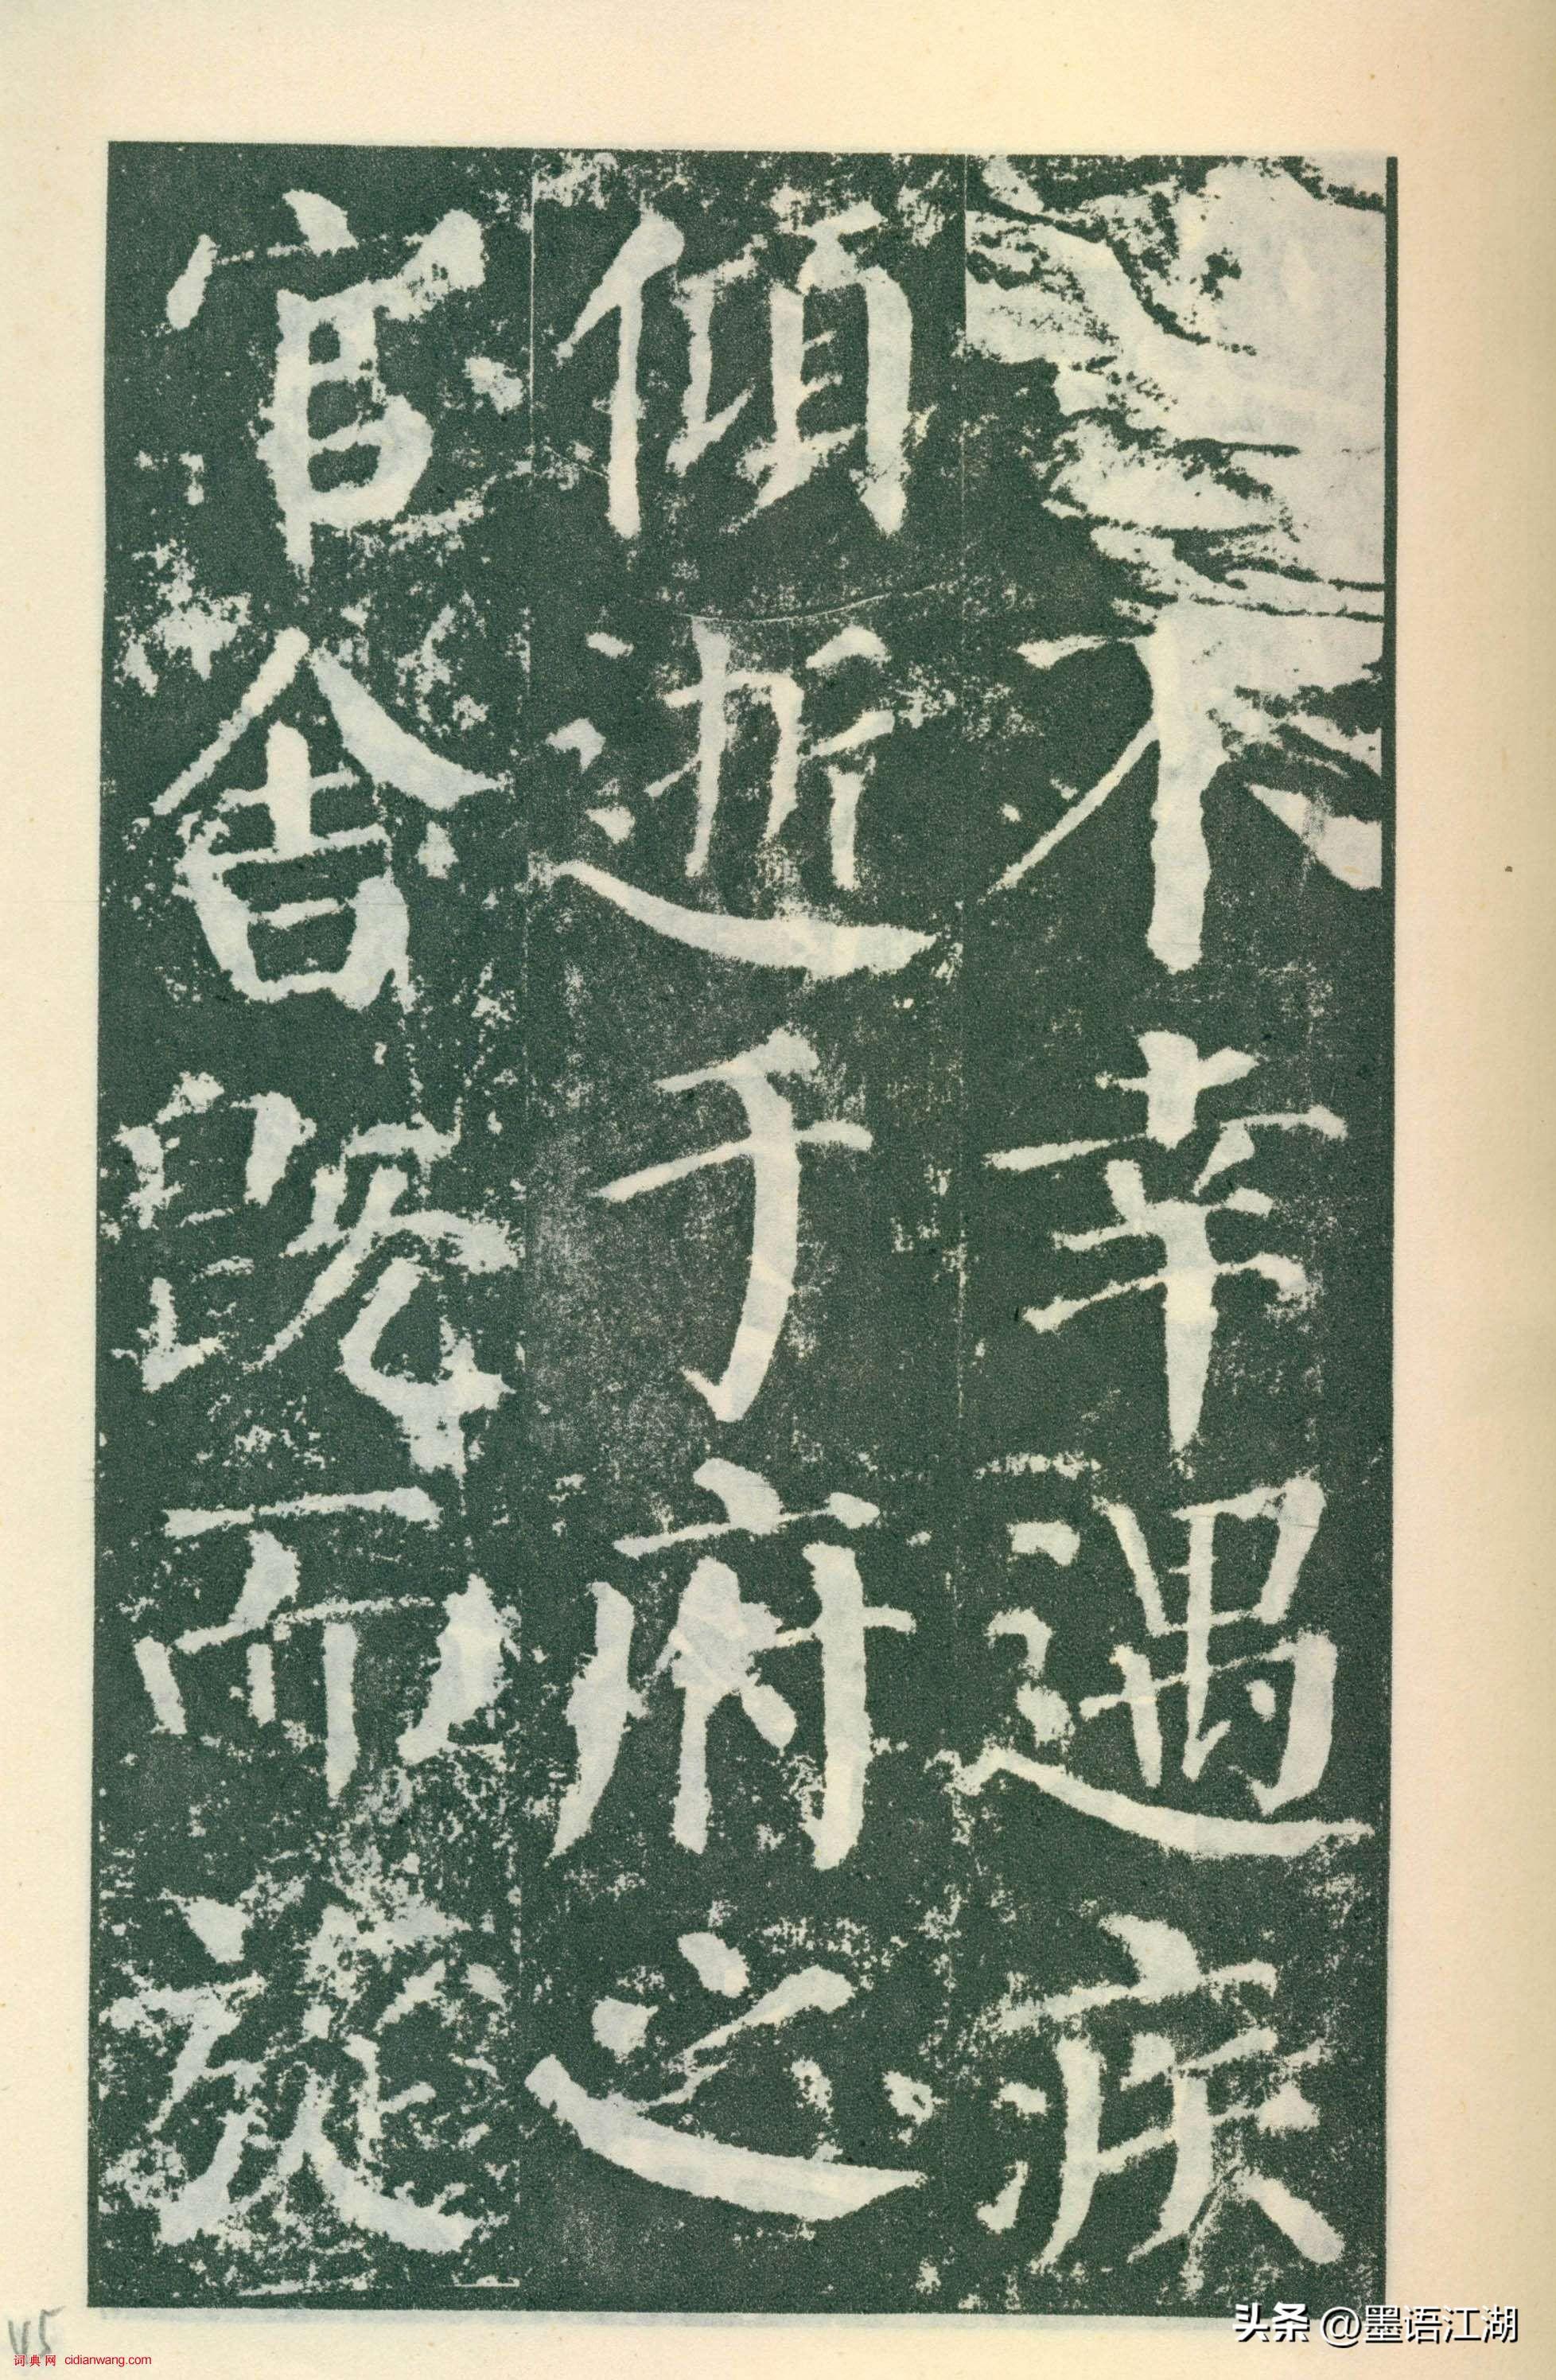 不幸遇疾
傾逝于府之
官舍既而
115
词典网 cidianwang.com
头条 @墨语江湖